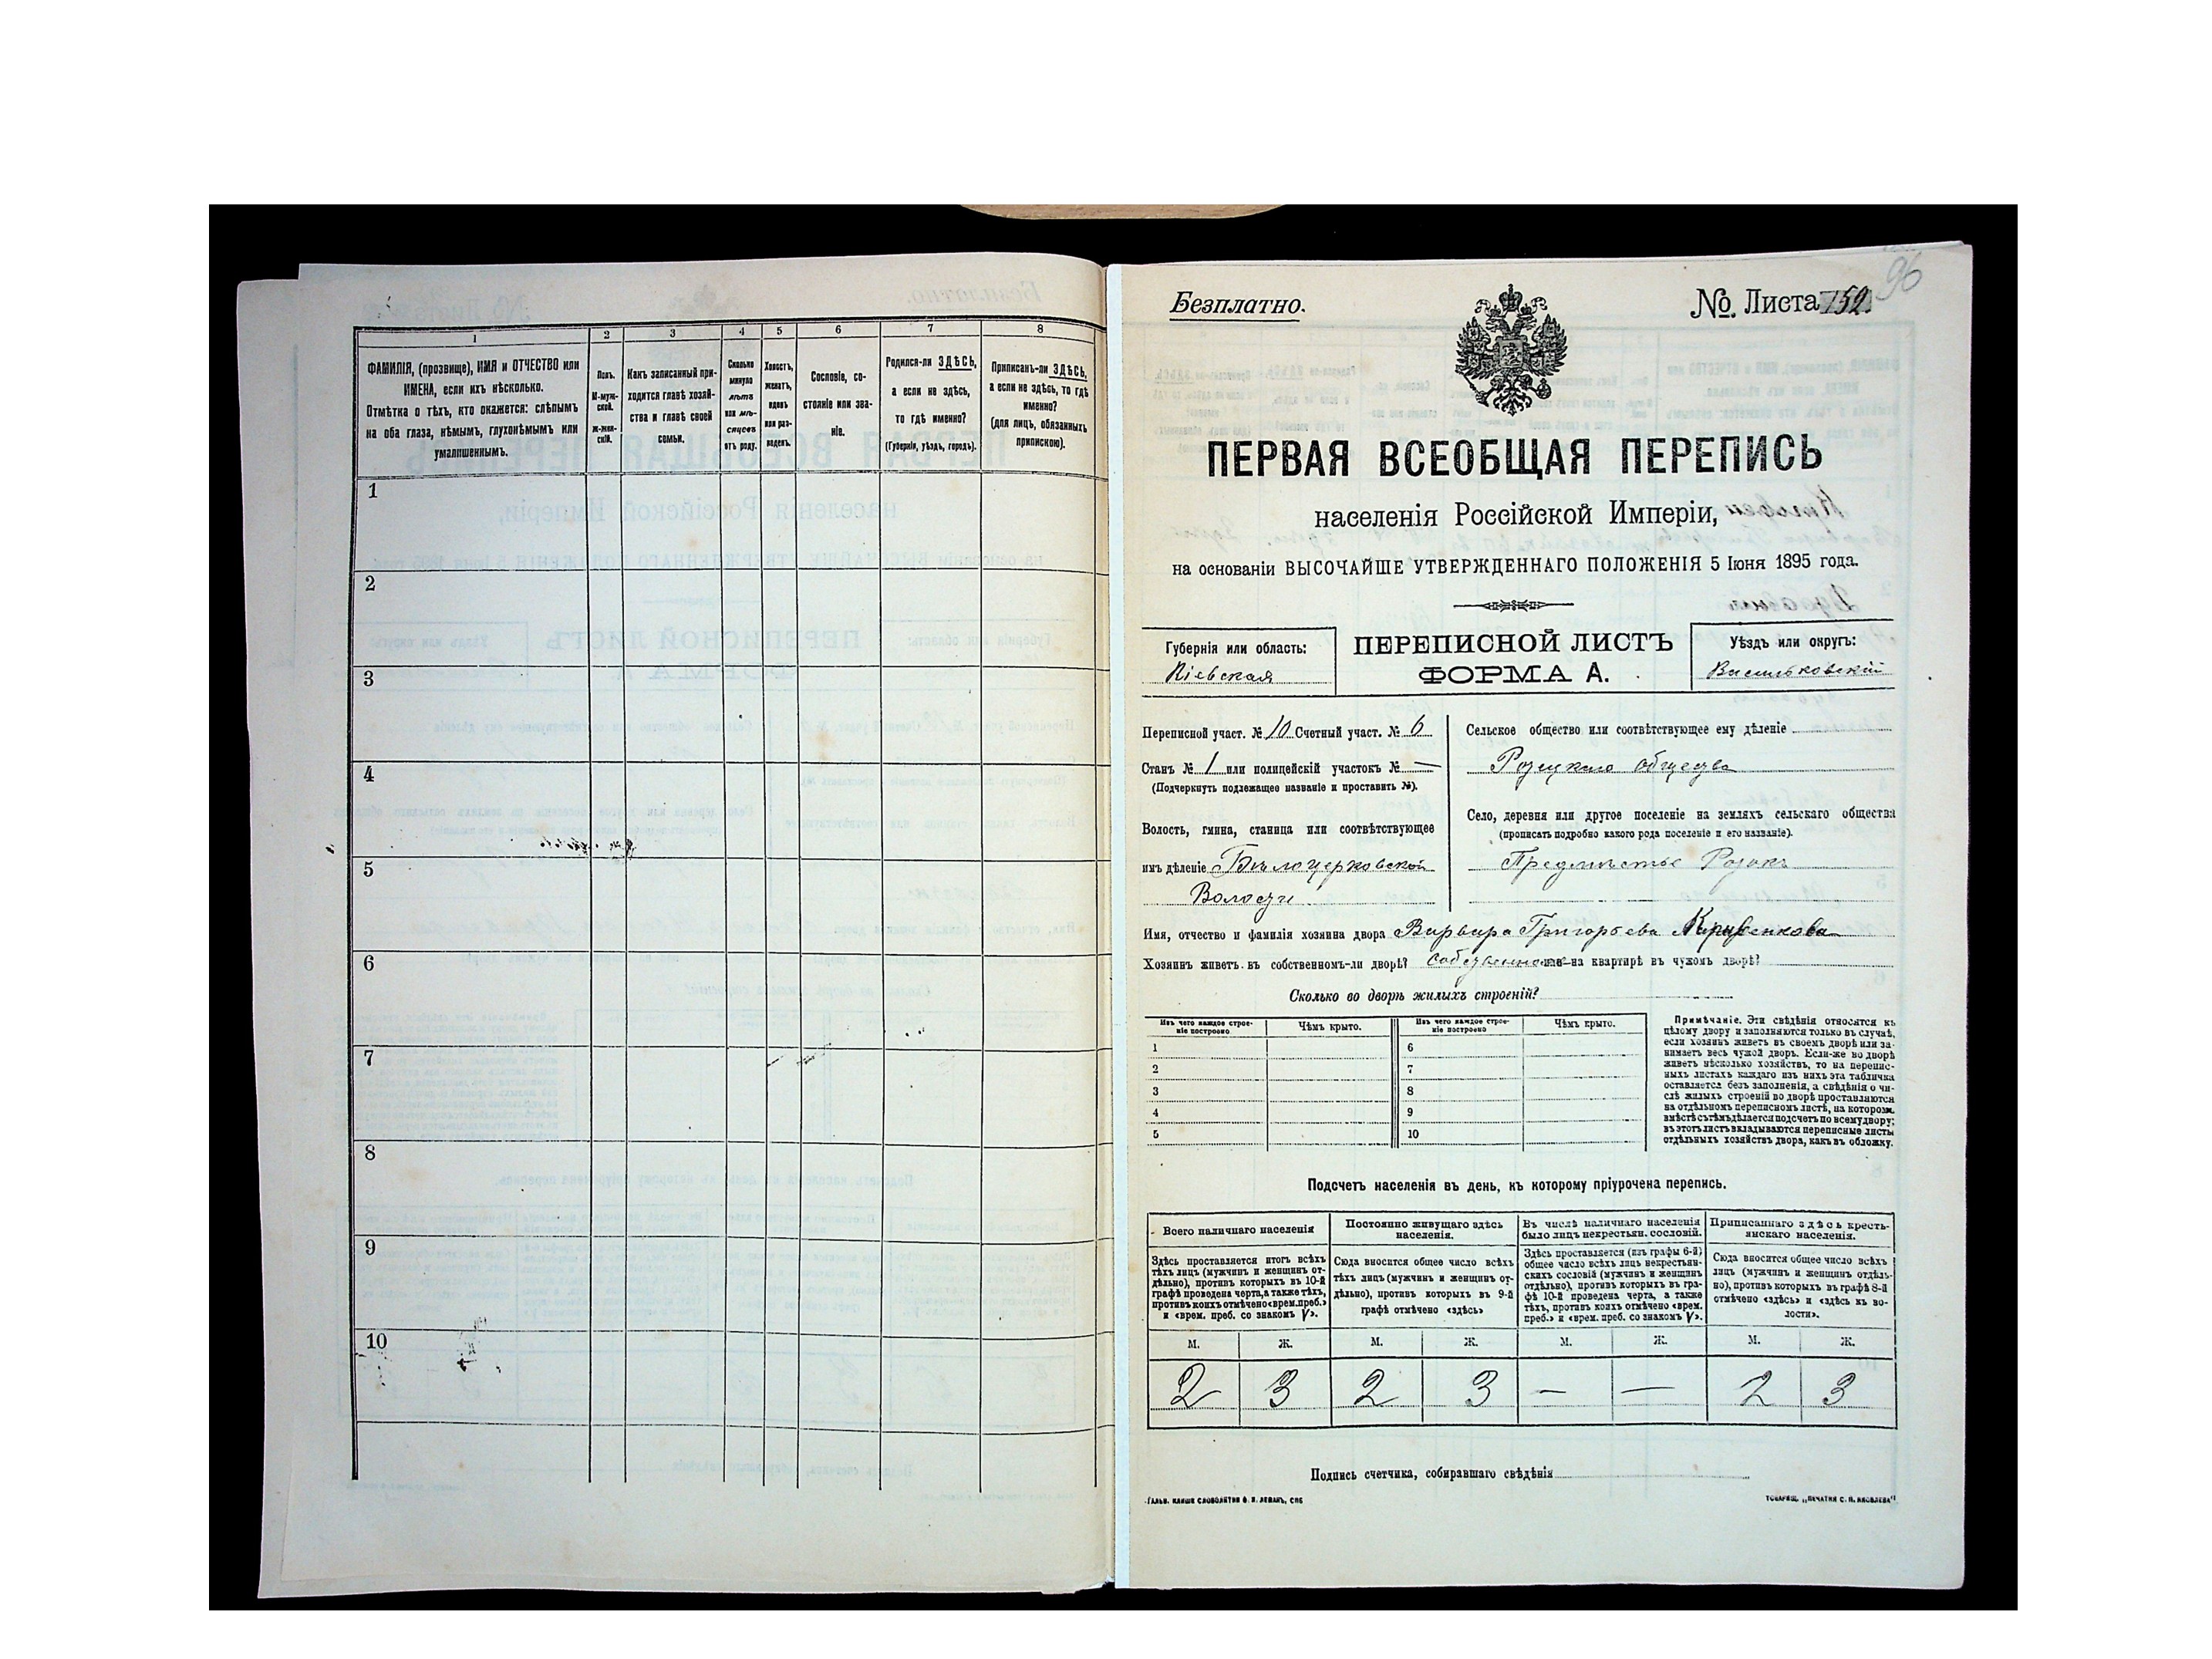 1
2
3
4
5
6
7
8
ФАМИЛІЯ, (прозвище), ИМЯ и ОТЧЕСТВО или
ИМЕНА, если ихъ нѣсколько.
Отмѣтка о тѣхъ, кто окажется: слѣпымъ
на оба глаза, нѣмымъ, глухонѣмымъ или
умалишеннымъ.
Полъ.
М-муж-
ской.
Ж-жен-
скій.
Какъ записанный при-
ходится главѣ хозяй-
ства и главѣ своей
семьи.
Сколько
минуло
лѣтъ
или мѣ-
сяцевъ
отъ роду.
Холостъ,
женатъ,
вдовъ
или раз-
веденъ.
Сословіе, со-
стояніе или зва-
ніе.
Родился-ли ЗДѢСЬ,
а если не здѣсь,
то гдѣ именно?
(Губернія, уѣздъ, городъ).
Приписанъ-ли ЗДѢСЬ,
а если не здѣсь, то гдѣ
именно?
(для лицъ, обязанныхъ
припискою).
1
2
3
4
5
6
7
8
9
10
96
Безплатно.
№ Листа 152.
ПЕРВАЯ ВСЕОБЩАЯ ПЕРЕПИСЬ
населенія Россійской Имперіи,
на основаніи ВЫСОЧАЙШЕ УТВЕРЖДЕННАГО ПОЛОЖЕНІЯ 5 Іюня 1895 года.
Губернія или область:
Кіевская
ПЕРЕПИСНОЙ ЛИСТЪ
ФОРМА А.
Уѣздъ или округъ:
Васильковскій
Переписной участ. № 10 Счетный участ. № 6
Станъ № 1 или полицейскій участокъ № —
(Подчеркнуть подлежащее названіе и проставить №).
Волость, гмина, станица или соотвѣтствующее
имъ дѣленіе Бѣлоцерковской
Волости
Сельское общество или соотвѣтствующее ему дѣленіе
общества
Село, деревня или другое поселеніе на земляхъ сельскаго общества
(прописать подробно какого рода поселеніе и его названіе).
Предмѣстье
Имя, отчество и фамилія хозяина двора Варвара Григорьева
Хозяинъ живетъ въ собственномъ-ли дворѣ? или на квартирѣ въ чужомъ дворѣ?
Сколько во дворѣ жилыхъ строеній?
Изъ чего каждое строе-
ніе построено
Чѣмъ крыто.
Изъ чего каждое строе-
ніе построено
Чѣмъ крыто.
1
2
3
4
5
6
7
8
9
10
Примѣчаніе. Эти свѣдѣнія относятся къ
цѣлому двору и заполняются только въ случаѣ,
если хозяинъ живетъ въ своемъ дворѣ или за-
нимаетъ весь чужой дворъ. Если-же во дворѣ
живетъ нѣсколько хозяйствъ, то на перепис-
ныхъ листахъ каждаго изъ нихъ эта табличка
оставляется безъ заполненія, а свѣдѣнія о чи-
слѣ жилыхъ строеній во дворѣ проставляются
на отдѣльномъ переписномъ листѣ, на которомъ
вмѣстѣ съ тѣмъ дѣлается подсчетъ по всему двору;
въ этотъ листъ вкладываются переписные листы
отдѣльныхъ хозяйствъ двора, какъ въ обложку.
Подсчетъ населенія въ день, къ которому пріурочена перепись.
Всего наличнаго населенія
Здѣсь проставляется итогъ всѣхъ
тѣхъ лицъ (мужчинъ и женщинъ от-
дѣльно), противъ которыхъ въ 10-й
графѣ проведена черта, а также тѣхъ,
противъ коихъ отмѣчено «врем. преб.»
и «врем. преб. со знакомъ V».
Постоянно живущаго здѣсь
населенія.
Сюда вносится общее число всѣхъ
тѣхъ лицъ (мужчинъ и женщинъ от-
дѣльно), противъ которыхъ въ 9-й
графѣ отмѣчено «здѣсь»
Въ числѣ наличнаго населенія
было лицъ некрестьян. сословій.
Здѣсь проставляется (изъ графы 6-й)
общее число всѣхъ лицъ некрестьян-
скихъ сословій (мужчинъ и женщинъ
отдѣльно), противъ которыхъ въ гра-
фѣ 10-й проведена черта, а также
тѣхъ, противъ коихъ отмѣчено «врем.
преб.» и «врем. преб. со знакомъ V».
Приписаннаго здѣсь кресть-
янскаго населенія.
Сюда вносится общее число всѣхъ
лицъ (мужчинъ и женщинъ отдѣль-
но), противъ которыхъ въ графѣ 8-й
отмѣчено «здѣсь» и «здѣсь къ во-
лости».
М. Ж. М. Ж. М. Ж. М. Ж.
2 3 2 3 — — 2 3
Подпись счетчика, собиравшаго свѣдѣнія
ГАЛЬВ. КЛИШЕ СЛОВОЛИТНИ Ф. И. ЛЕМАНЪ, СПБ
ТОВАРИЩ. „ПЕЧАТНЯ С. П. ЯКОВЛЕВА"